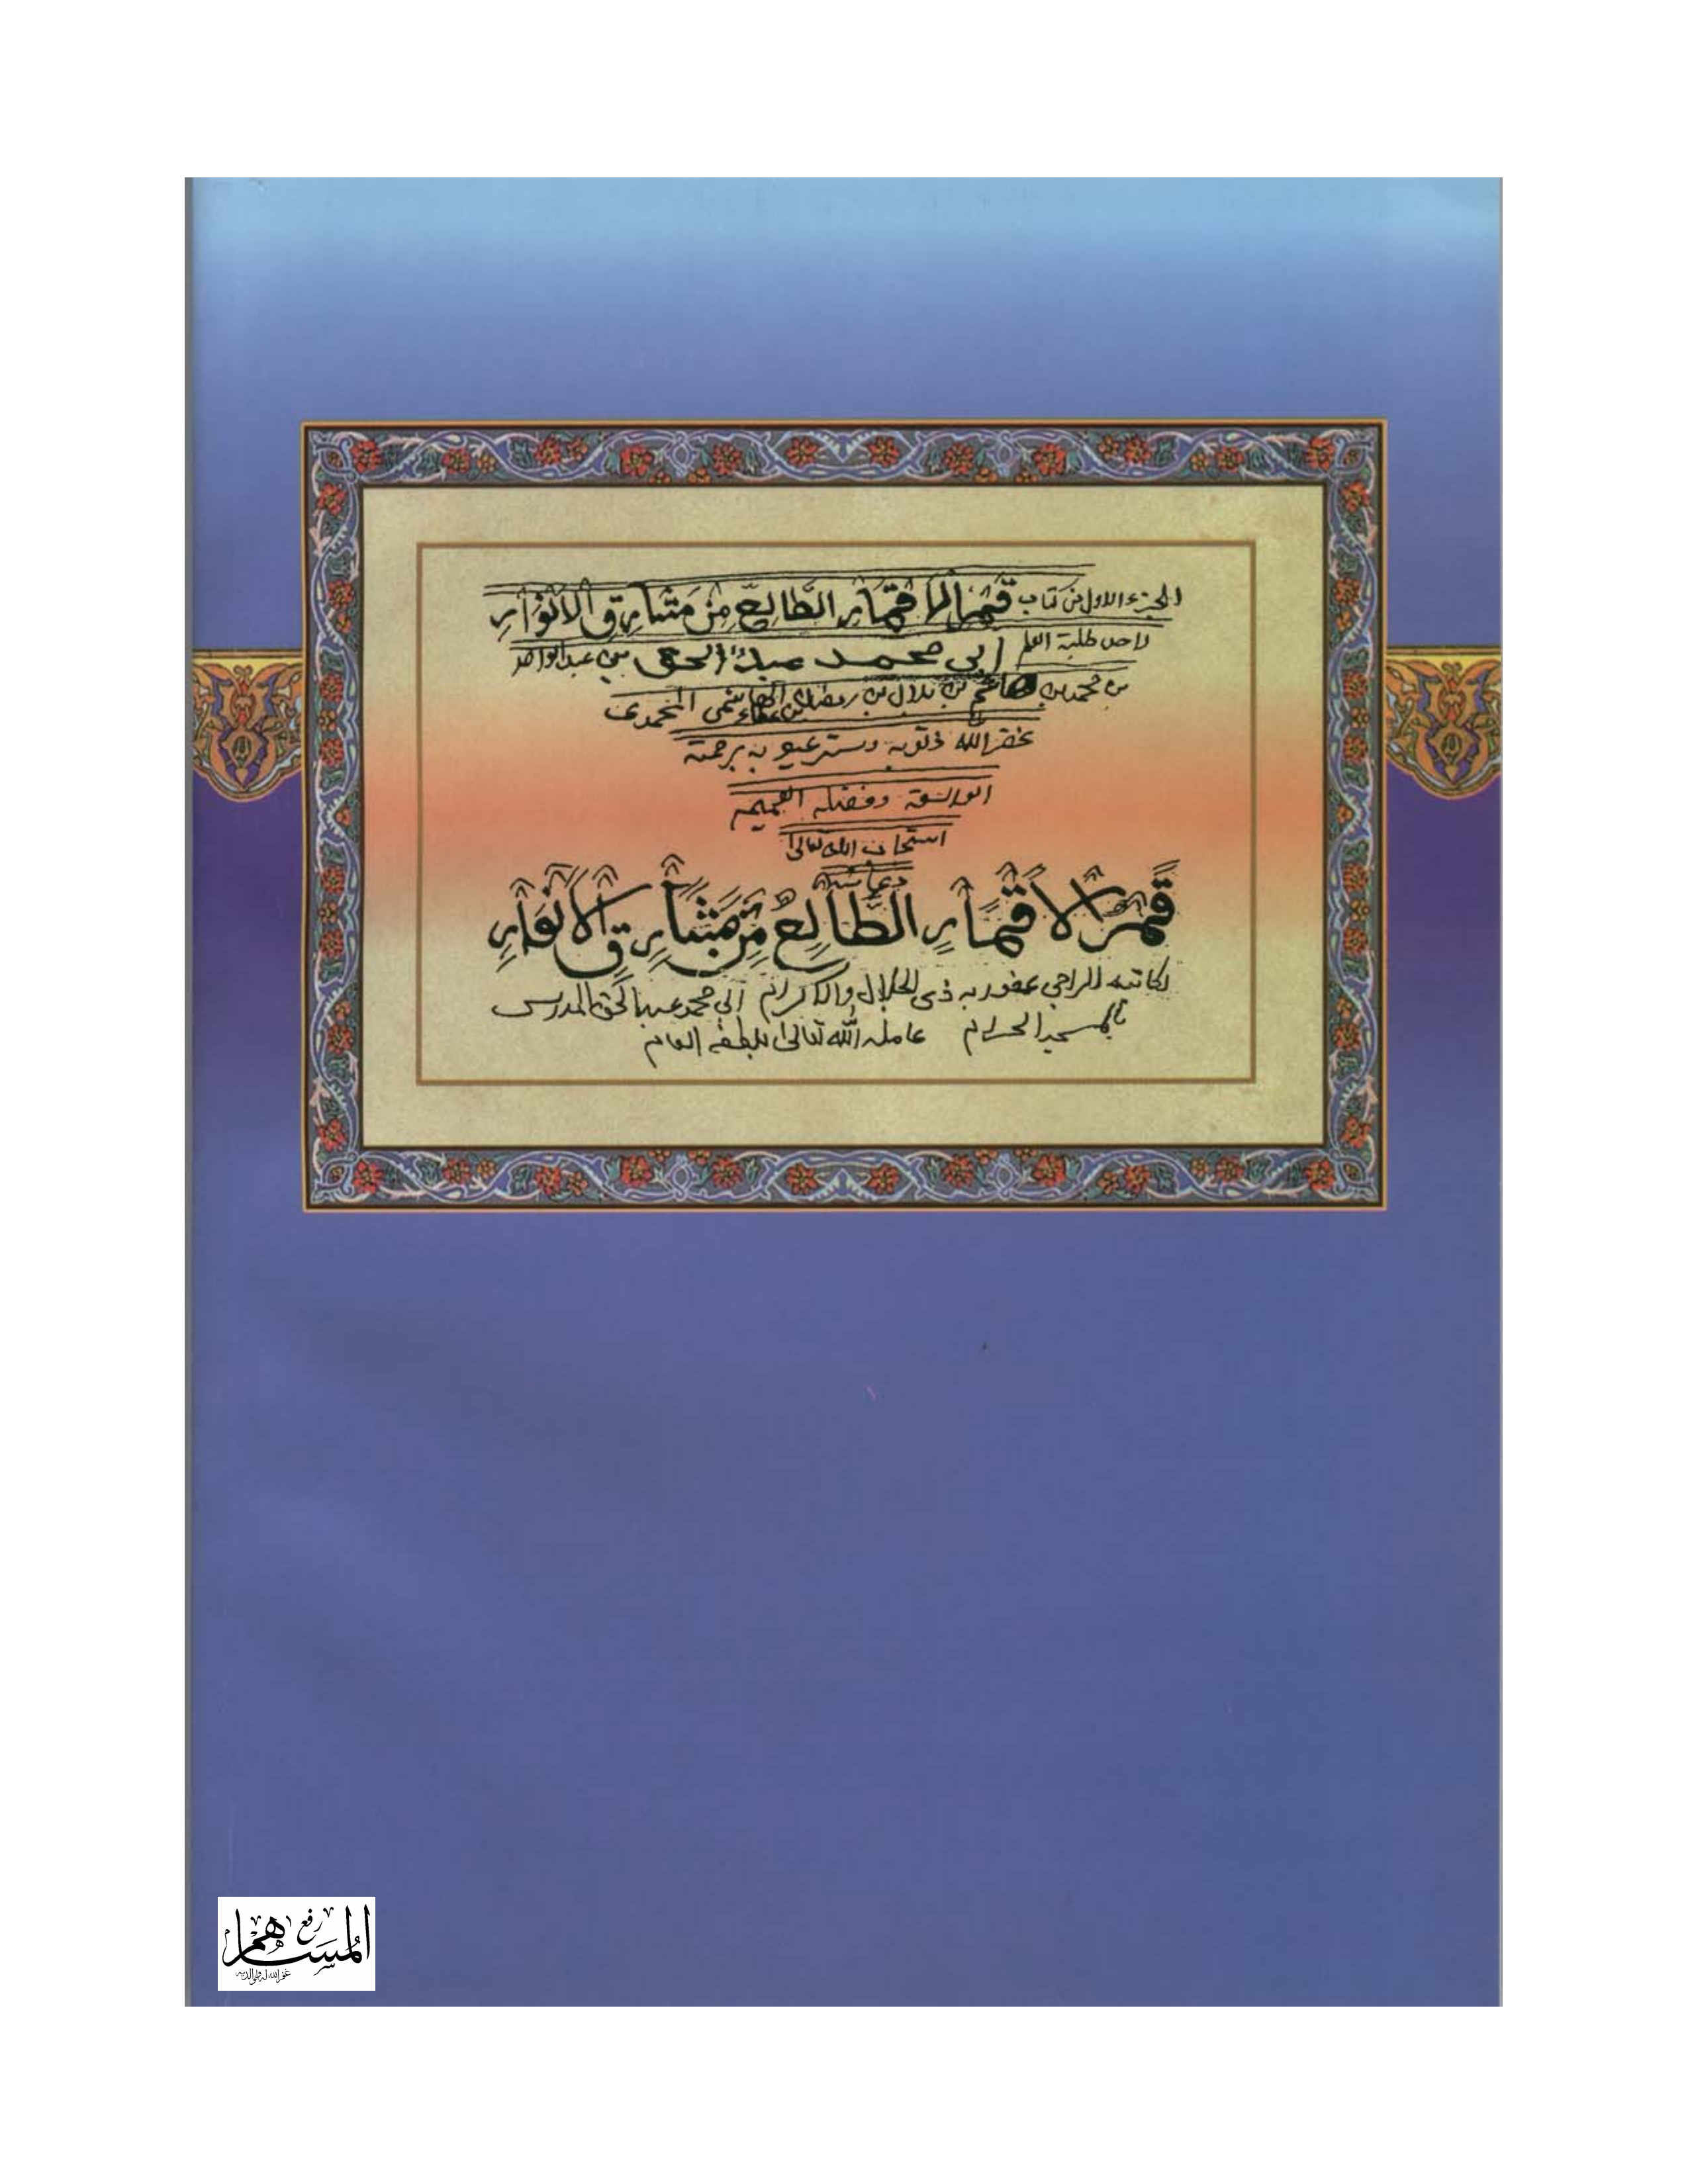 الجزء الاول من كتاب قمر الاقمار الطالع من مشارق الانوار
لاحد طلبة العلم أبي محمد عبد الحق بن عبد الواحد
بن محمد بن هاشم بن بلال بن رمضان الهاشمي المحمدي
غفر الله ذنوبه وستر عيوبه برحمته
الواسعة وفضله العميم
استجاب الله تعالى
دعاءه
قمر الاقمار الطالع من مشارق الانوار
لكاتبه الراجي عفو ربه ذي الجلال والاكرام أبي محمد عبد الحق المدرس
بالمسجد الحرام عامله الله تعالى بلطفه العام
رفع
المساهم
غفر الله له ولوالديه